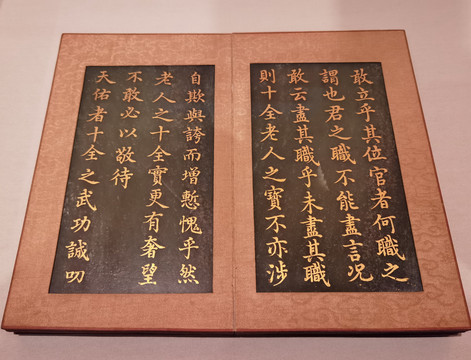 敢立乎其位官者何職之
謂也君之職不能盡言況
敢云盡其職乎未盡其職
則十全老人之寶不亦涉
自欺與誇而增慙愧乎然
老人之十全實更有奢望
不敢必以敬待
天佑者十全之武功誠叨